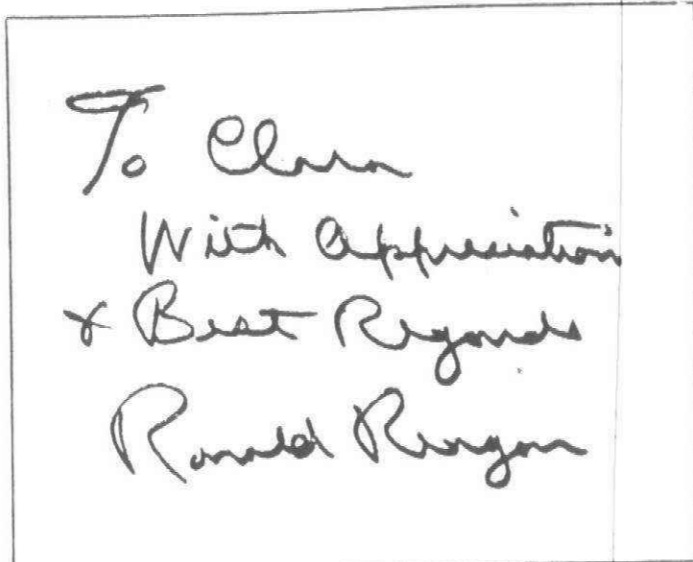 To Clara
With Appreciation
& Best Regards
Ronald Reagan